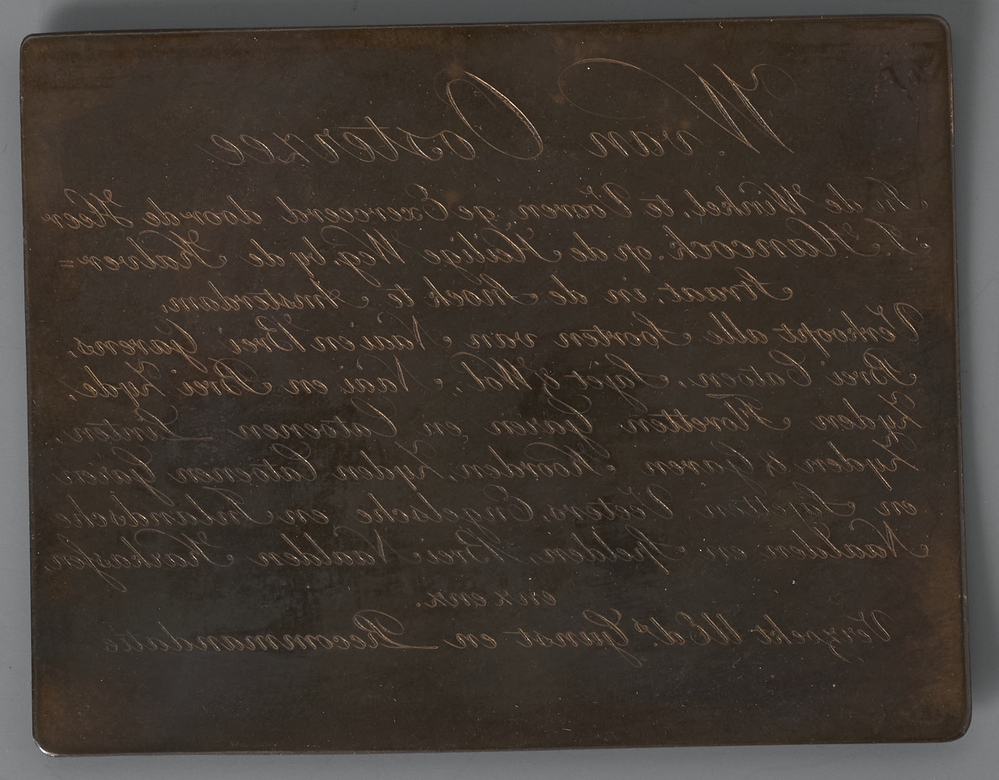 W. van Oosterzee
In de Winkel, te Vooren ge Exerceerd door de Heer
J. Hancock. op de Heilige Weg, by de Kalver=
straat, in de Snoek te Amsterdam
Verkoopt alle Soorten van Naai en Brei Garens,
Brei Catoen, Sajet & Wol, Naai en Brei Zyde,
Zyden Floretten Garen en Catoenen Linten,
Zyden & Garen Koorden, Zyden Catoenen Garen
en Sajetten Veeters, Engelsche en Inlandsche
Naalden en Spelden, Brei Naalden Karkassen
enz enz.
Verzoekt UEds. Gunst en Recommandatie